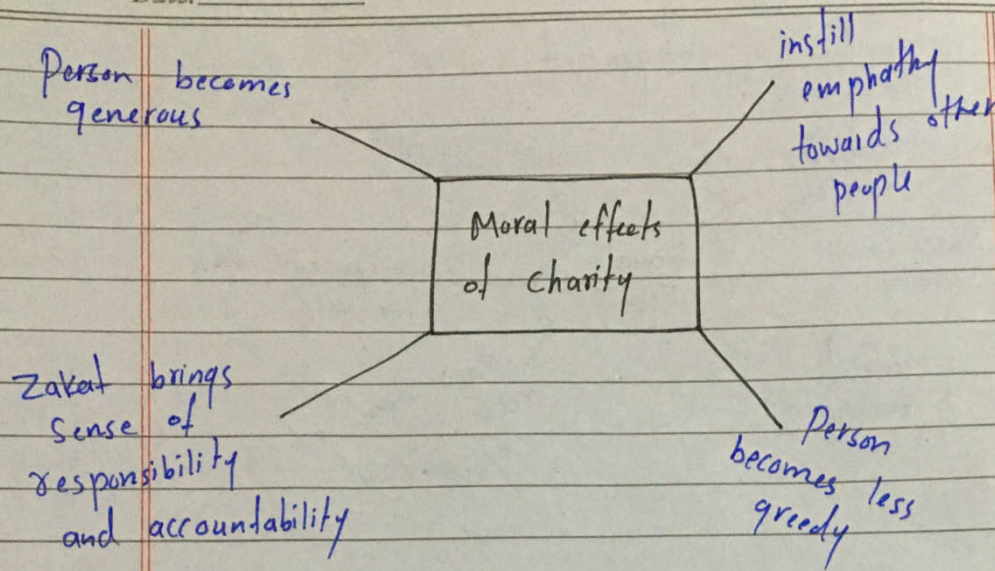 Person becomes
generous
instill
emphathy
towards other
people
Moral effects
of charity
Zakat brings
sense of
responsibility
and accountability
Person
becomes less
greedy